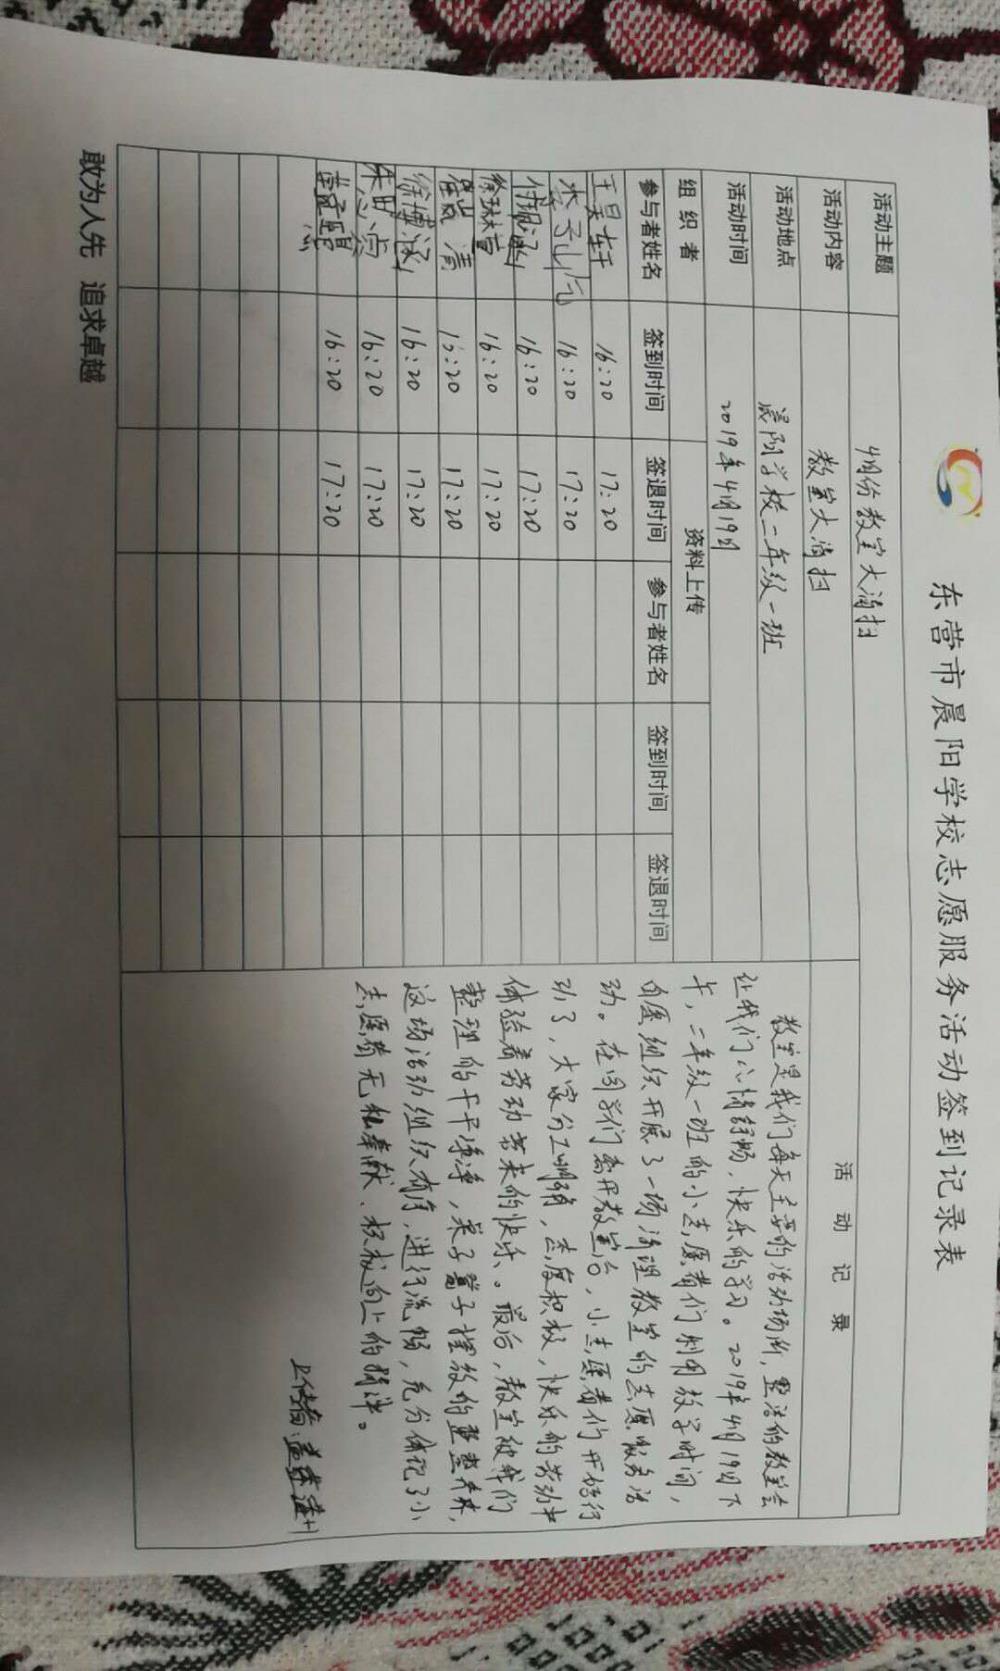 东营市晨阳学校志愿服务活动签到记录表
活动主题 4月份教室大清扫
活动内容 教室大清扫
活动地点 晨阳学校二年级一班
活动时间 2019年4月19日
组织者 资料上传
参与者姓名 签到时间 签退时间 参与者姓名 签到时间 签退时间
王昊轩 16:20 17:20
16:20 17:20
16:20 17:20
徐琳萱 16:20 17:20
清 16:20 17:20
徐博涵 16:20 17:20
朱 16:20 17:20
16:20 17:20
活动记录
教室是我们每天主要的活动场所,整洁的教室会
让我们心情舒畅、快乐的学习。2019年4月19日下
午,二年级一班的小志愿者们利用放学时间,
自愿组织开展了一场清理教室的志愿服务活
动。在同学们离开教室后,小志愿者们开始行
动了,大家分工明确,态度积极,快乐的劳动中
体验着劳动带来的快乐。最后,教室被我们
整理的干干净净,桌子凳子摆放的整整齐齐,
这场活动组织有序,进行流畅,充分体现了小
志愿者无私奉献、积极向上的精神。
上传者:
敢为人先 追求卓越